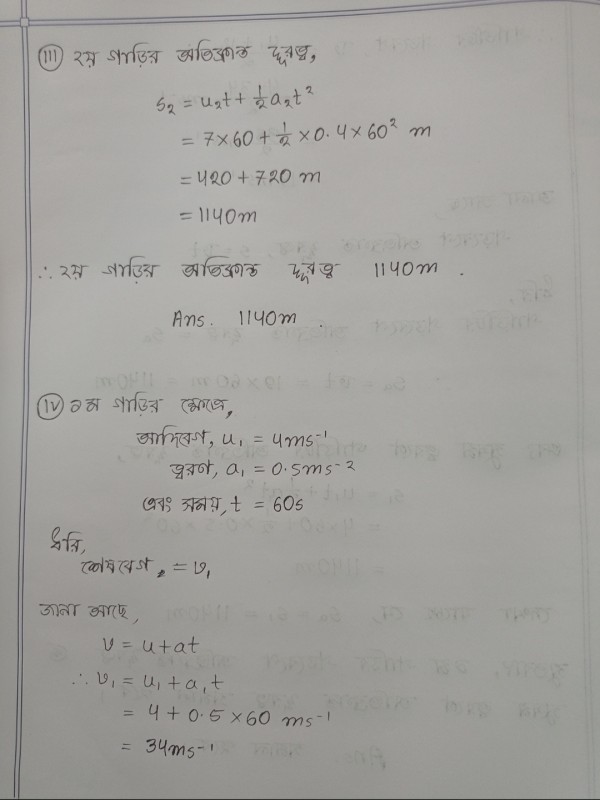 (iii) ২য় গাড়ির অতিক্রান্ত দূরত্ব,
s₂ = u₂t + ½a₂t²
= 7×60 + ½×0.4×60² m
= 420 + 720 m
= 1140m
∴ ২য় গাড়ির অতিক্রান্ত দূরত্ব 1140m.
Ans. 1140m.
(iv) ১ম গাড়ির ক্ষেত্রে,
আদিবেগ, u₁ = 4ms⁻¹
ত্বরণ, a₁ = 0.5ms⁻²
এবং সময়, t = 60s
ধরি,
শেষবেগ = v₁
জানা আছে,
v = u+at
∴ v₁ = u₁ + a₁t
= 4 + 0.5 × 60 ms⁻¹
= 34ms⁻¹